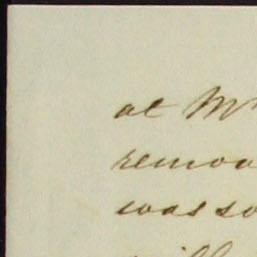 at M
remov
was so